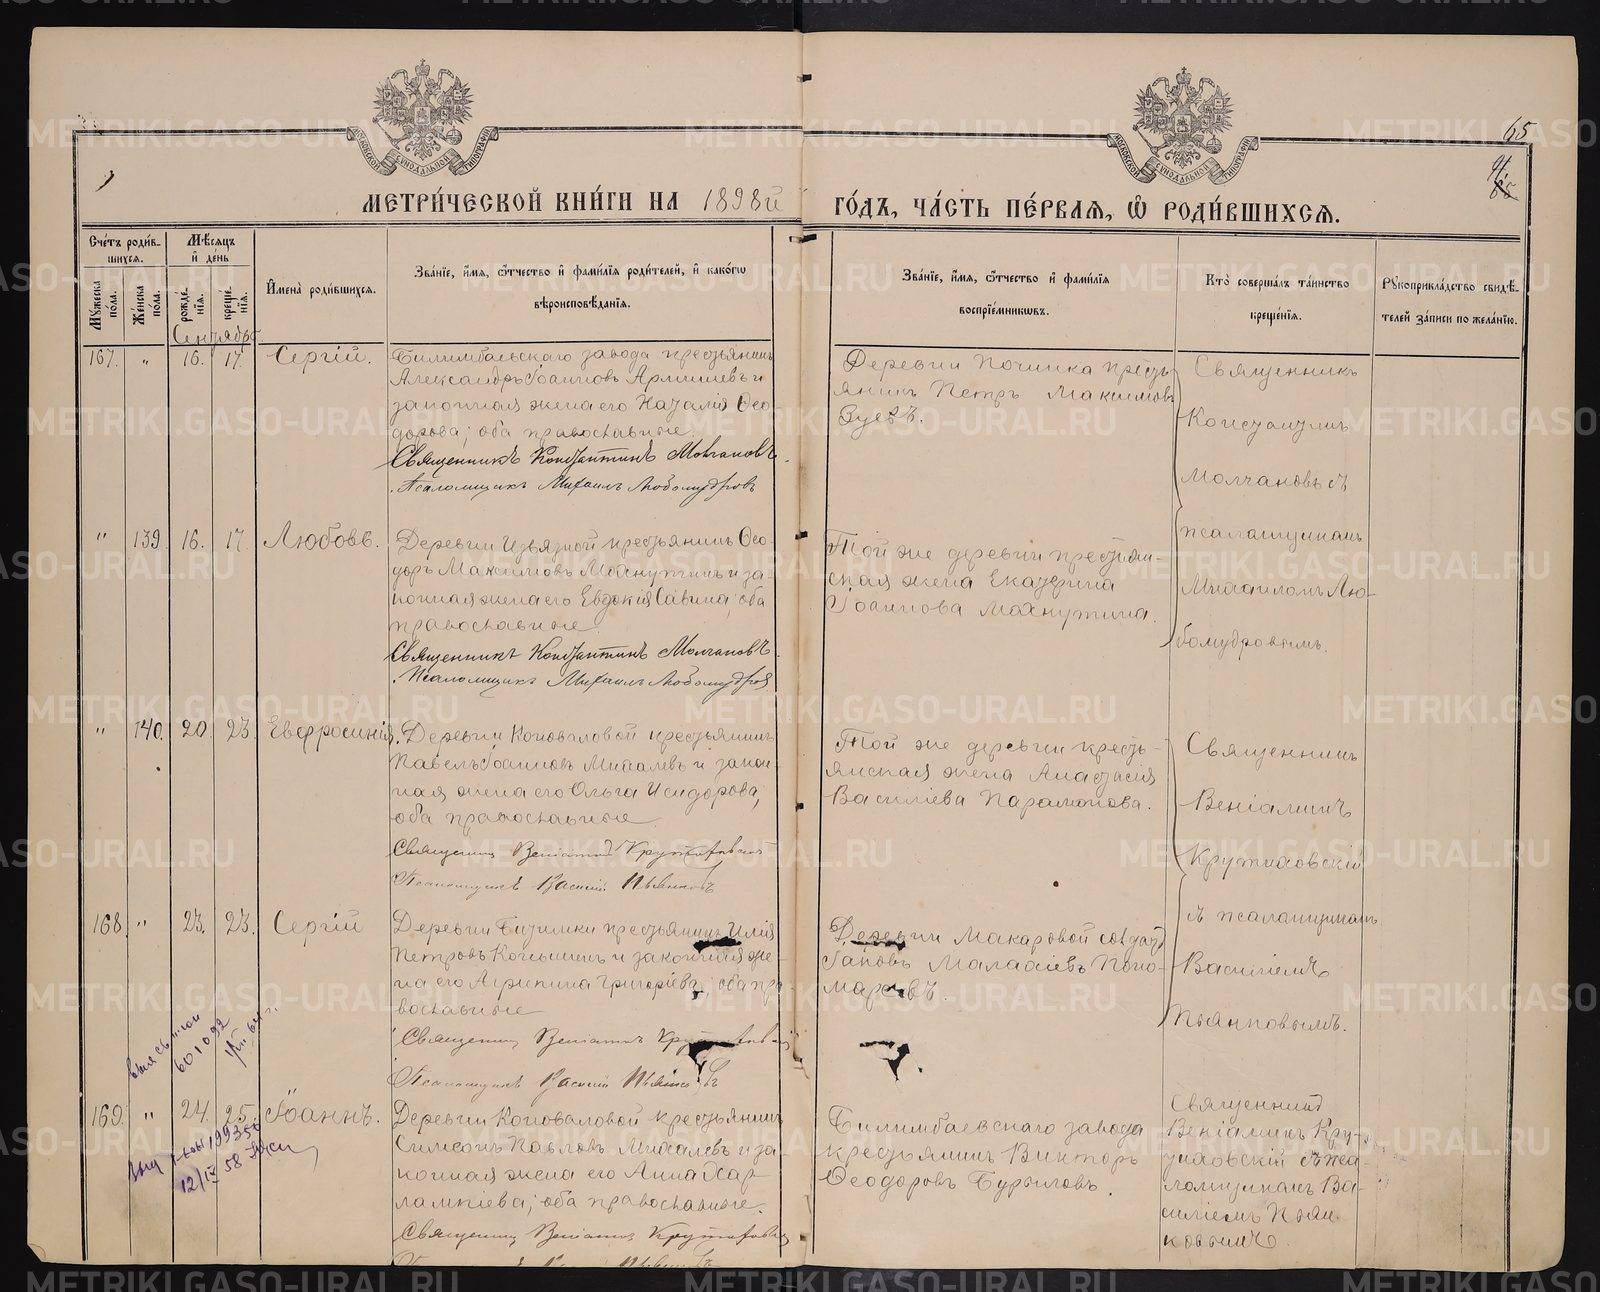 65
МЕТРИ́ЧЕСКОЙ КНИ́ГИ НА 1898й ГО́ДЪ, ЧА́СТЬ ПЕ́РВАЯ, Ѡ҆ РОДИ́ВШИХСЯ.
Сче́тъ роди́в-
шихся.
Мꙋ́жеска по́ла.
Же́нска по́ла.
Мѣ́сяцъ и҆ де́нь
рожде́нїя.
креще́нїя.
И҆мена̀ роди́вшихся.
Зва́нїе, и҆́мя, ѻ҆́тчество и҆ фами́лїя роди́телей, и҆ како́гѡ
вѣроисповѣ́данїя.
Зва́нїе, и҆́мя, ѻ҆́тчество и҆ фами́лїя
воспрїе́мникѡвъ.
Кто̀ соверша́лъ та́инство
креще́нїя.
Рꙋкоприкла́дство свидѣ́-
телей за́писи по жела́нїю.
Сентябрь
167. " 16. 17. Сергій.
Билимбаевскаго завода крестьянинъ
Александръ Іоанновъ Армишевъ и
законная жена его Наталія Ѳео-
дорова; оба православные.
Священникъ Константинъ Молчановъ.
Псаломщикъ Михаилъ Любомудровъ
Деревни Починка кресть-
янинъ Петръ Максимовъ
Зуевъ.
Священникъ
Константинъ
Молчановъ съ
псаломщикомъ
Михаиломъ Лю-
бомудровымъ.
" 139. 16. 17. Любовь.
Деревни Извязной крестьянинъ Ѳео-
доръ Максимовъ Махнуткинъ и за-
конная жена его Евдокія Савина; оба
православные.
Священникъ Константинъ Молчановъ.
Псаломщикъ Михаилъ Любомудровъ
Той же деревни крестьян-
ская жена Екатерина
Іоаннова Махнутина.
" 140. 20. 23. Евфросинія.
Деревни Коноваловой крестьянинъ
Павелъ Іоанновъ Михалевъ и закон-
ная жена его Ольга Исидорова,
оба православные.
Священникъ Веніаминъ Крутиховскій
Псаломщикъ Василій Пьянковъ
Той же деревни кресть-
янская жена Анастасія
Василіева Парамонова.
Священникъ
Веніаминъ
Крутиховскій
съ псаломщикомъ
Василіемъ
Пьянковымъ.
168. " 23. 23. Сергій
Деревни Битимки крестьянинъ Илія
Петровъ Коньшинъ и законная же-
на его Агрипина Григоріева; оба пра-
вославные
Священникъ Веніаминъ Крутиховскій
Псаломщикъ Василій Пьянковъ
Деревни Макаровой солдатъ
Іаковъ Малахіевъ Поно-
маревъ.
601092
169. " 24. 25. Іоаннъ.
Деревни Коноваловой крестьянинъ
Симеонъ Павловъ Михалевъ и за-
конная жена его Анна Хар-
лампіева; оба православные.
Священникъ Веніаминъ Крутиховскій
Билимбаевскаго завода
крестьянинъ Викторъ
Ѳеодоровъ Бурыловъ.
Священникъ
Веніаминъ Кру-
тиховскій съ пса-
ломщикомъ Ва-
силіемъ Пьян-
ковымъ.
12/IV 58
METRIKI.GASO-URAL.RU